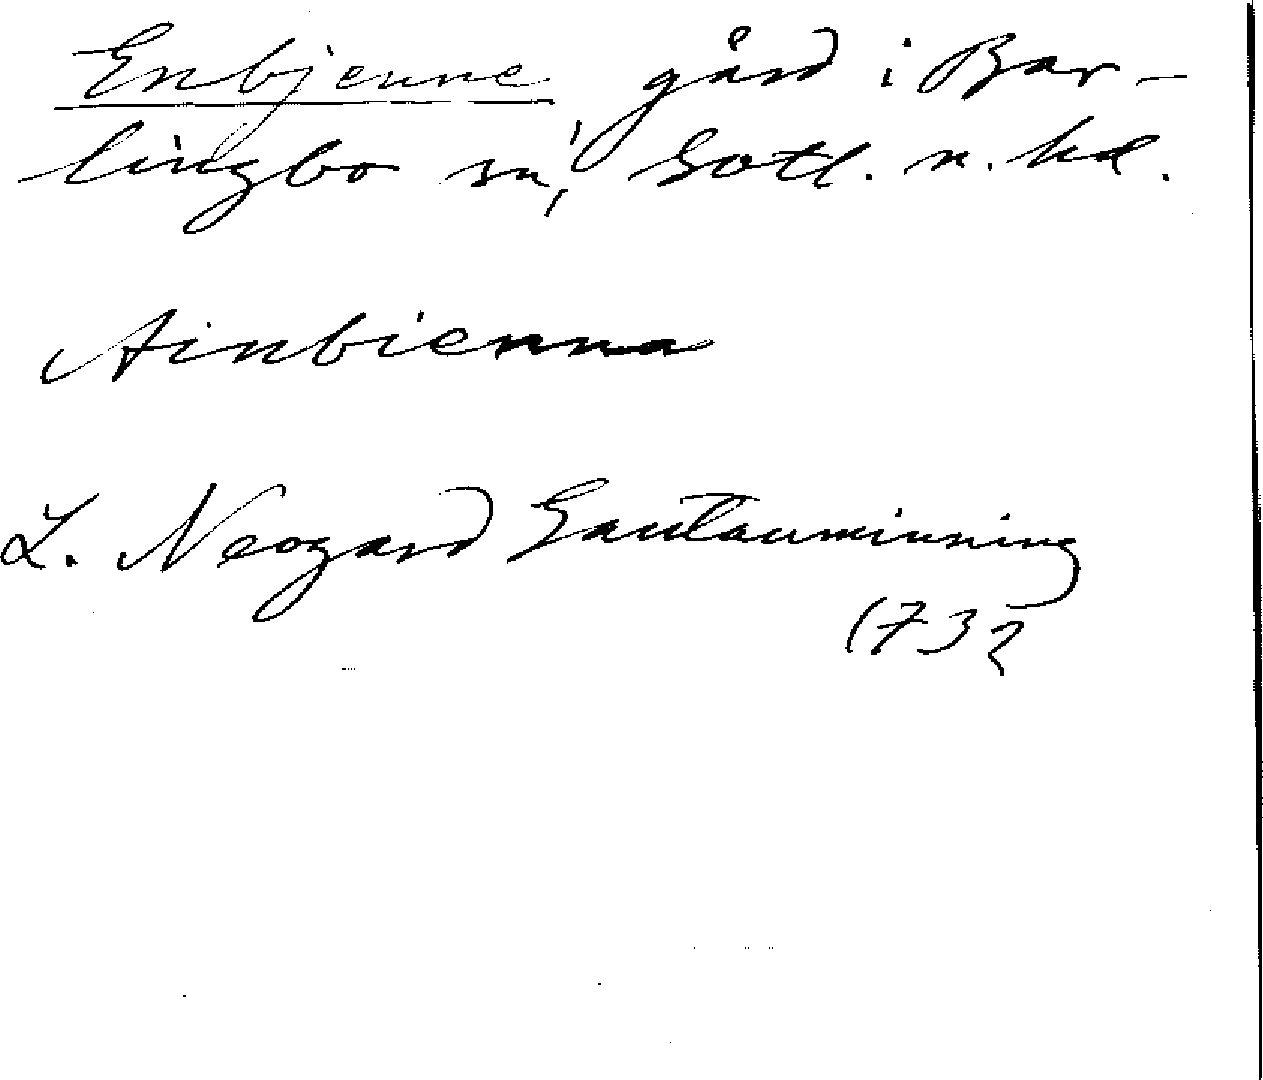 Enbjenne gård i Bar-
lingbo sn, Gotl. n. hd.
Ainbienna
L. Neogard Gautauminning
1732